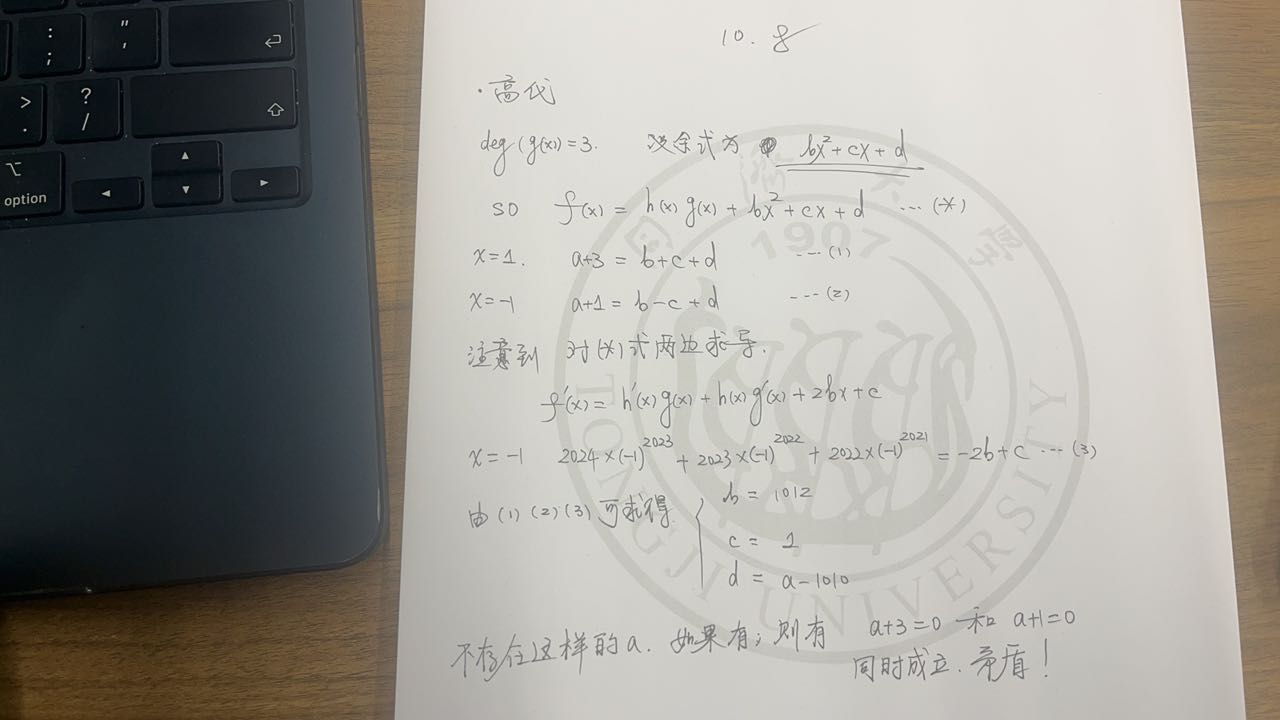 10.8
·高代
deg(g(x))=3. 设余式为 bx²+cx+d
so f(x) = h(x)g(x) + bx²+cx+d ···(*)
x=1. a+3 = b+c+d ---(1)
x=-1 a+1 = b-c+d ---(2)
注意到 对(*)式两边求导.
f'(x) = h'(x)g(x) + h(x)g'(x) + 2bx+c
x=-1 2024×(-1)²⁰²³ + 2023×(-1)²⁰²² + 2022×(-1)²⁰²¹ = -2b+c ···(3)
由(1)(2)(3)可求得 { b = 1012
c = 1
d = a-1010
不存在这样的a. 如果有; 则有 a+3=0 和 a+1=0
同时成立. 矛盾!
: ;
" '
> .
? /
option
1907
TONGJI UNIVERSITY